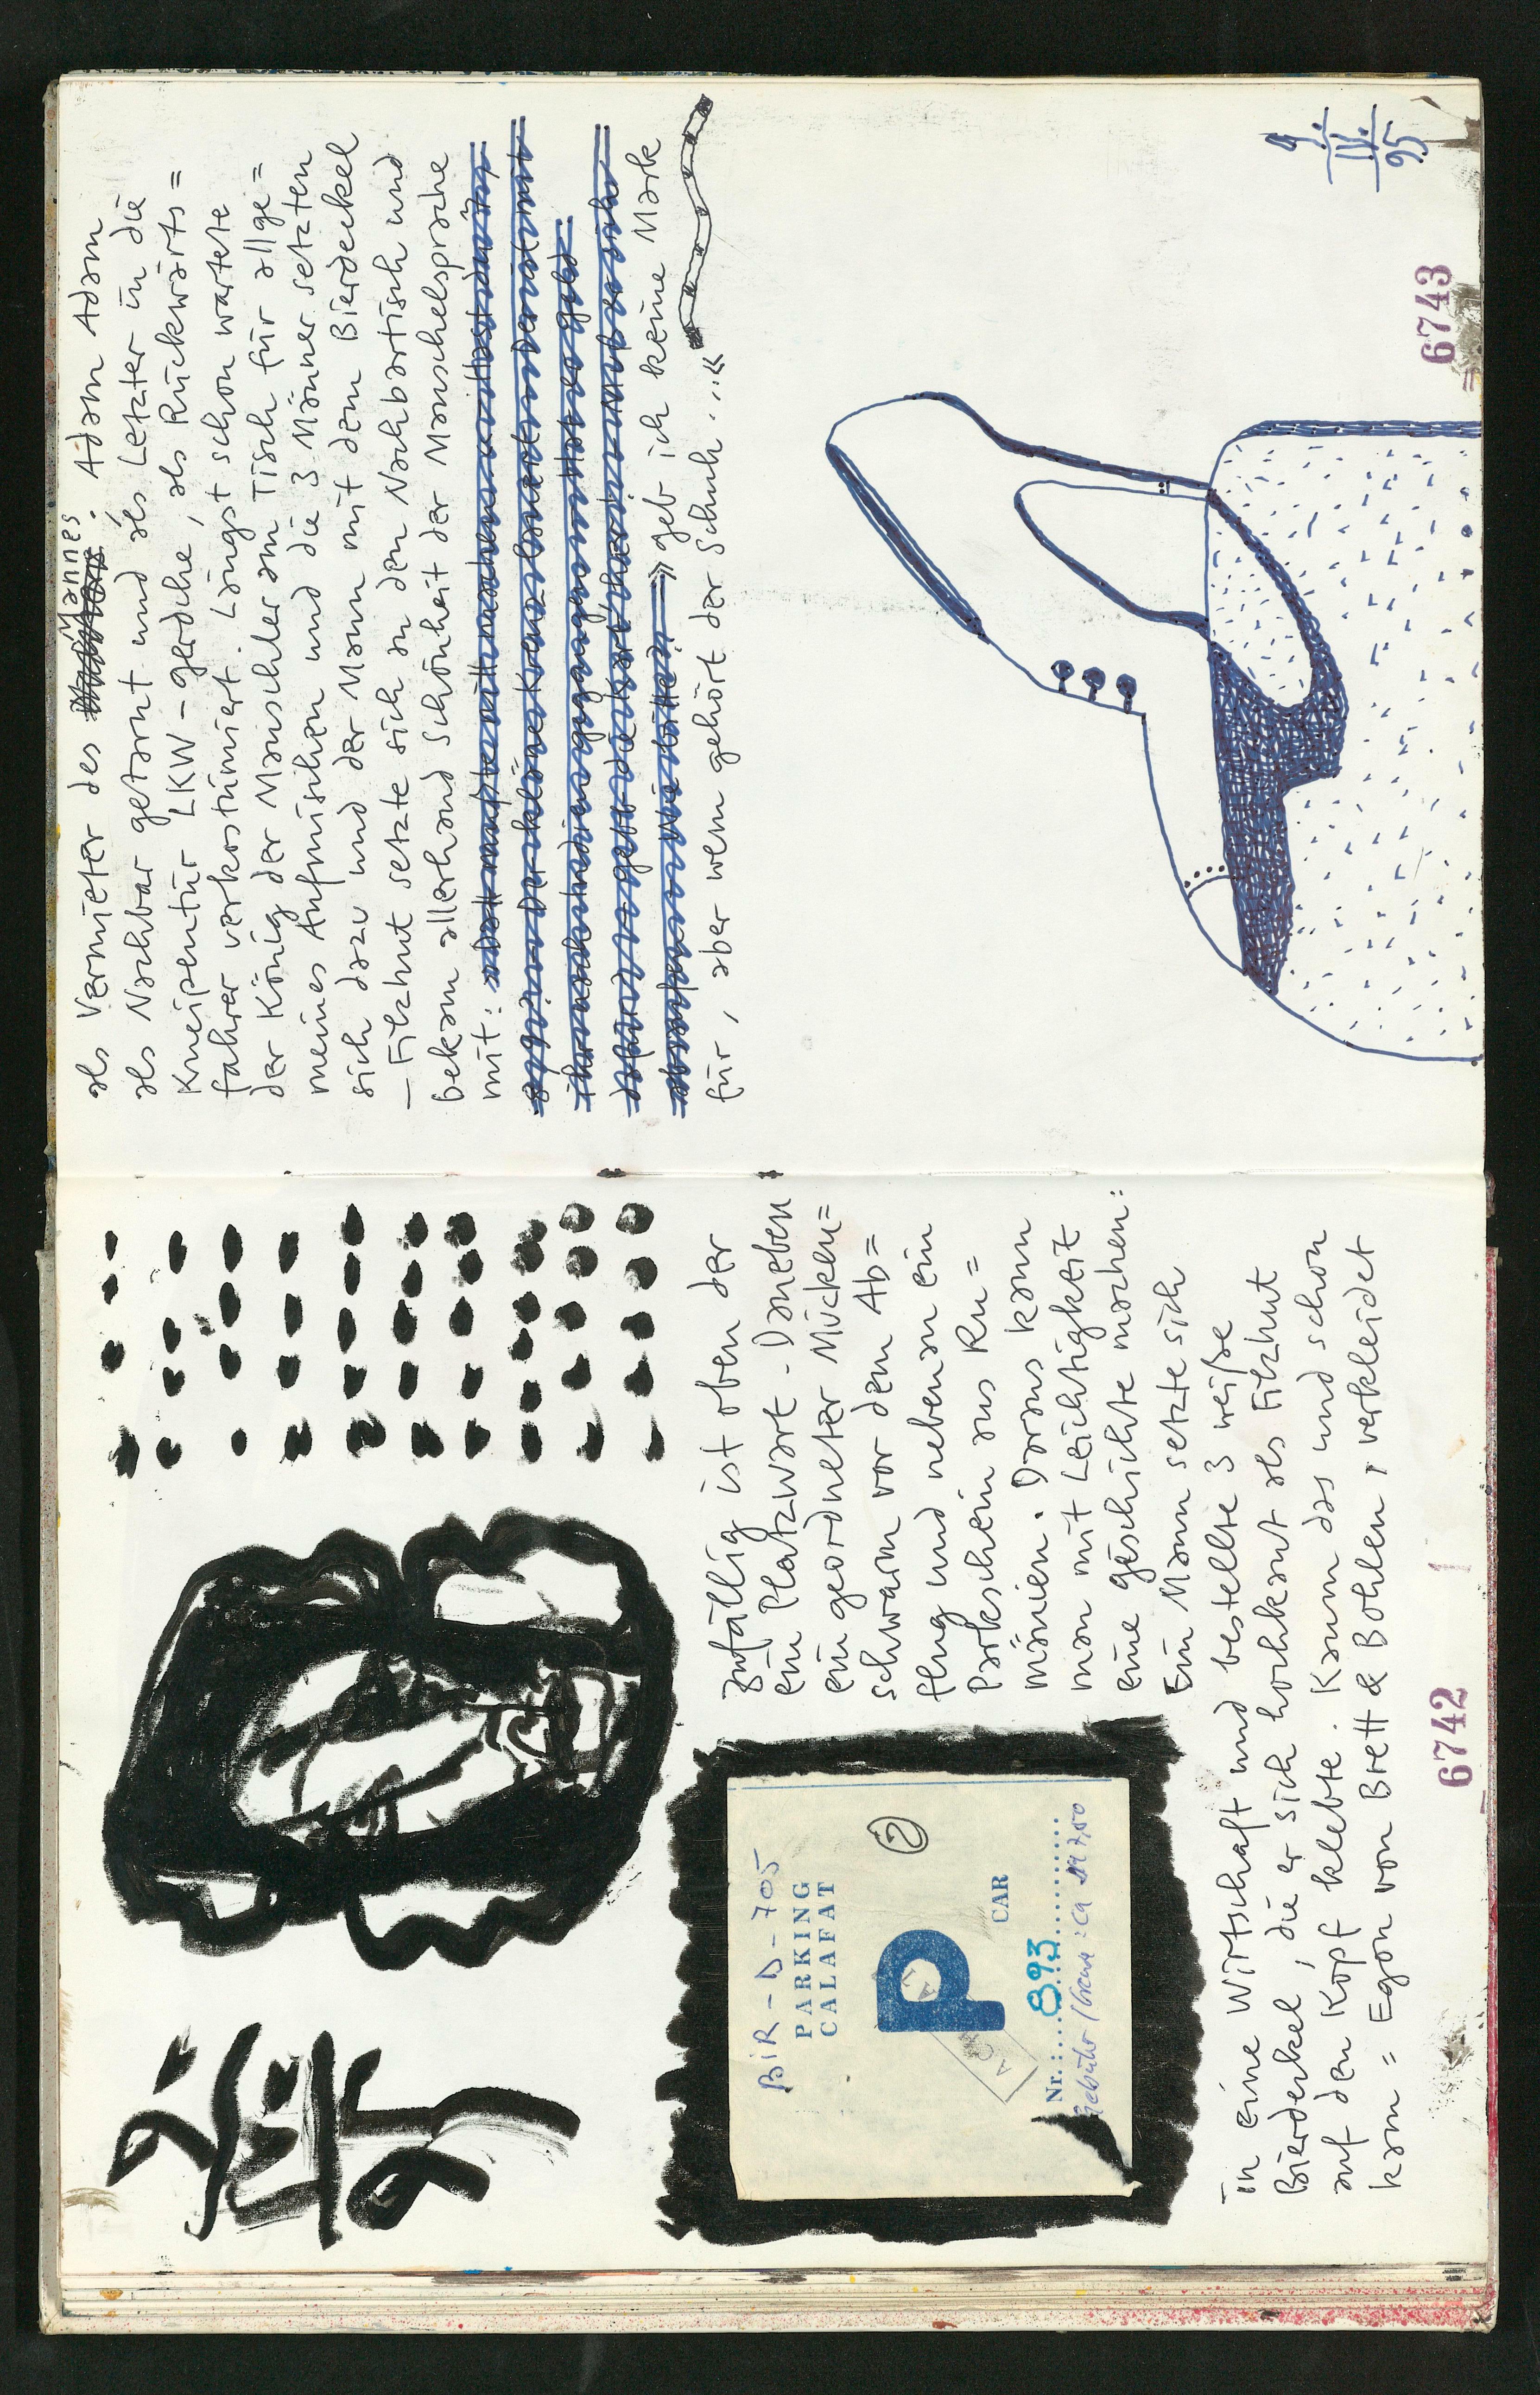 9.
IV.
95
BiR-D-705
PARKING
CALAFAT
P
CAR
2
Nr.: 893
Gebühr
zufällig ist oben der
ein Platzwart. Daneben
ein geordneter Mücken=
schwarm vor dem Ab=
flug und nebenan ein
Parkschein aus Ru=
mänien. Daraus kann
man mit Leichtigkeit
eine geschichte machen:
Ein Mann setzte sich
in eine Wirtschaft und bestellte 3 weiße
Bierdeckel, die er sich hochkant als Filzhut
auf den Kopf klebte. Kaum das und schon
kam = Egon von Brett & Bohlen, verkleidet
6742
als Vermieter des Hannes. Adam Adam
als Nachbar getarnt und als Letzter in die
Kneipentür LKW-gerdche, als Rückwärts=
fahrer verkostümiert. Längst schon wartete
der König der Mauschler am Tisch für allge=
meines Aufmischen und die 3 Männer setzten
sich dazu und der Mann mit dem Bierdeckel
-Filzhut setzte sich an den Nachbartisch und
bekam allerhand Schönheit der Mauschelsprache
mit:
»geb ich keine Mark
für, aber wem gehört der Schuh....«
9.
IV.
95
6743